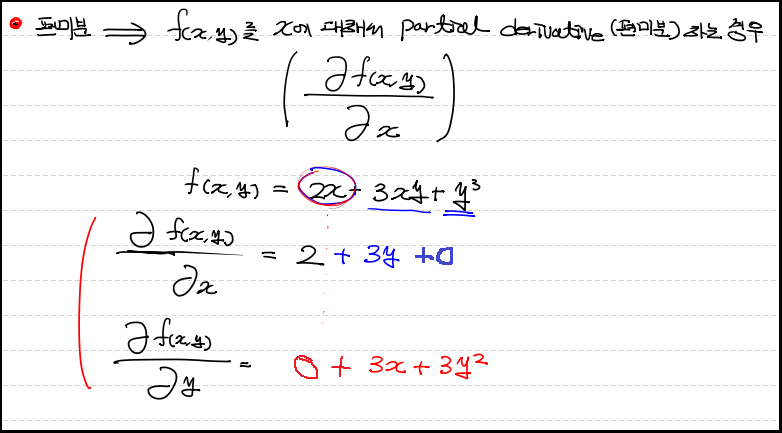 편미분 ⟹ f(x,y)를 x에 대해서 partial derivative (편미분) 하는 경우
( ∂f(x,y) / ∂x )
f(x,y) = 2x + 3xy + y³
∂f(x,y) / ∂x = 2 + 3y + 0
∂f(x,y) / ∂y = 0 + 3x + 3y²